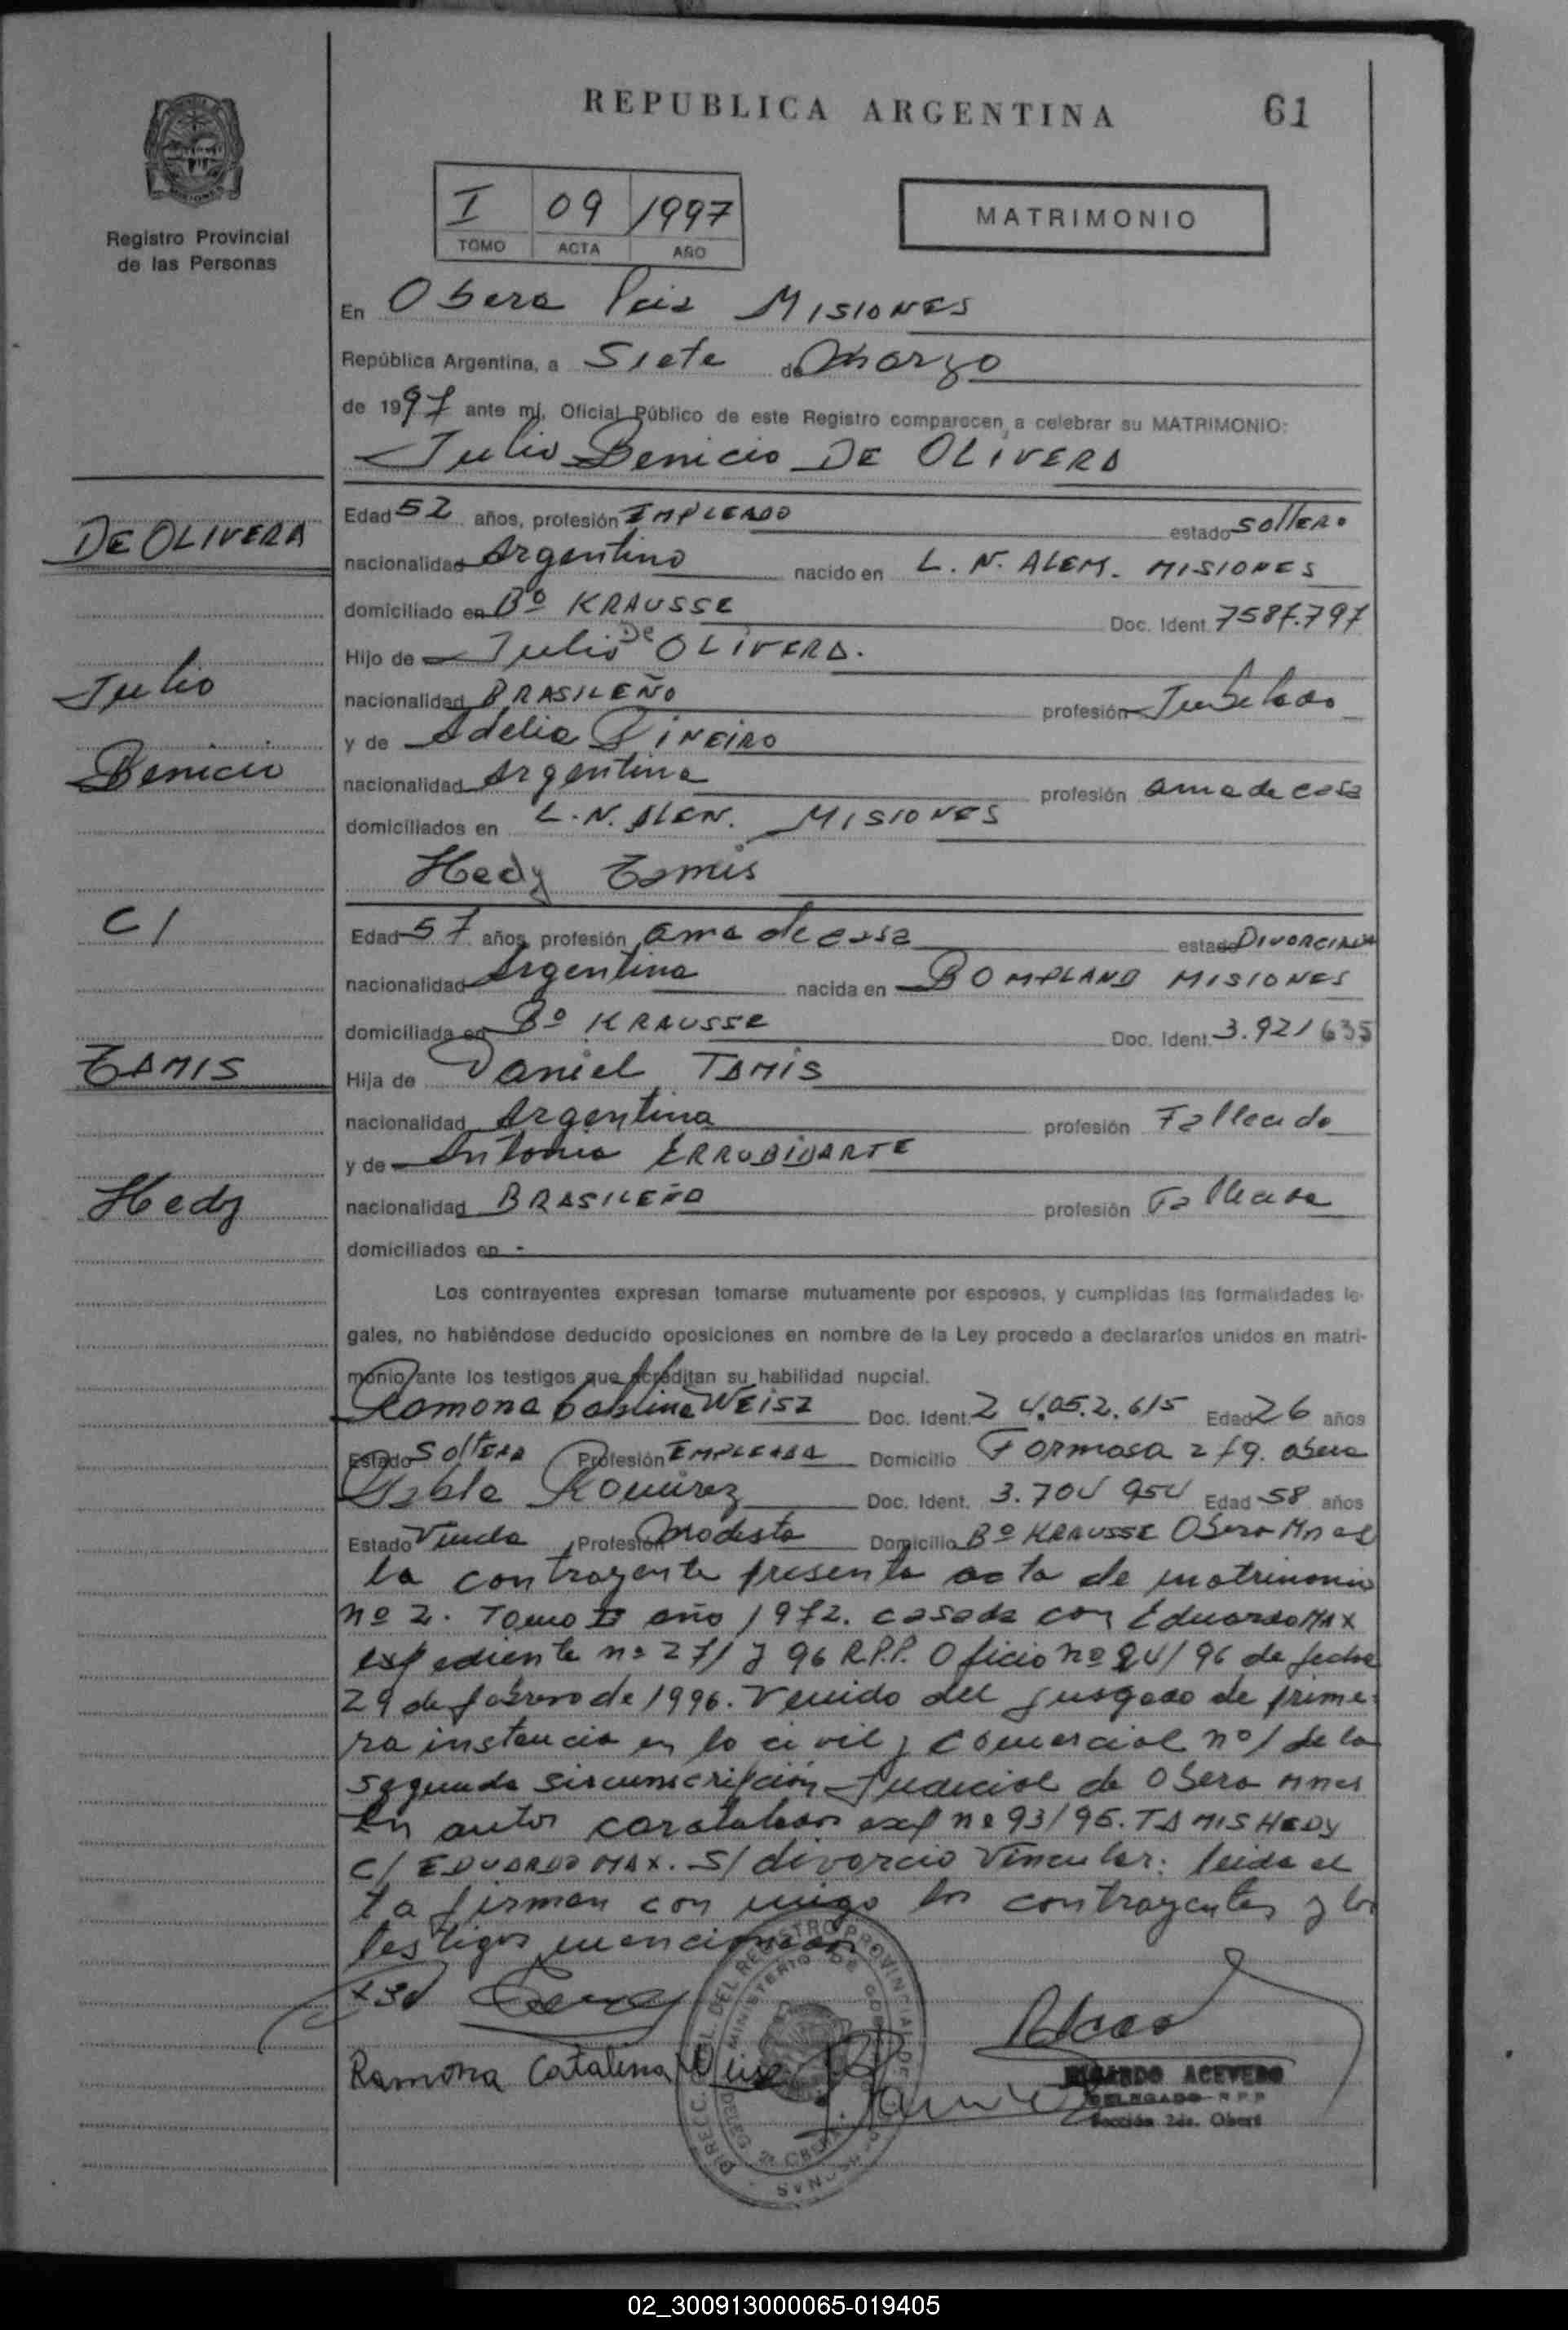 REPUBLICA ARGENTINA
61
Registro Provincial
de las Personas
I 09 1997
TOMO ACTA AÑO
MATRIMONIO
En Obera MISIONES
República Argentina, a Siete de Marzo
de 1997 ante mí, Oficial Público de este Registro comparecen a celebrar su MATRIMONIO:
Julio Benicio DE OLIVERA
DE OLIVERA
Julio
Benicio
C/
TAMIS
Hedy
Edad 52 años, profesión EMPLEADO estado SOLTERO
nacionalidad Argentino nacido en L. N. ALEM. MISIONES
domiciliado en Bº KRAUSSE Doc. Ident. 7587.797
Hijo de Julio De OLIVERA.
nacionalidad BRASILEÑO profesión Jubilado
y de Adelia PINEIRO
nacionalidad Argentina profesión ama de casa
domiciliados en L.N. ALEM. MISIONES
Hedy Tamis
Edad 57 años, profesión ama de casa estado DIVORCIADA
nacionalidad Argentina nacida en BOMPLAND MISIONES
domiciliada en Bº KRAUSSE Doc. Ident. 3.921635
Hija de Daniel TAMIS
nacionalidad Argentina profesión Fallecido
y de Antonia
nacionalidad BRASILEÑA profesión Fallecida
domiciliados en -
Los contrayentes expresan tomarse mutuamente por esposos, y cumplidas las formalidades le-
gales, no habiéndose deducido oposiciones en nombre de la Ley procedo a declararlos unidos en matri-
monio ante los testigos que acreditan su habilidad nupcial.
Ramona Catalina WEISZ Doc. Ident. 24.052.615 Edad 26 años
Estado Soltera Profesión EMPLEADA Domicilio Formosa 279. Obera
Ramirez Doc. Ident. 3.704 954 Edad 58 años
Estado Viuda Profesión Modista Domicilio Bº KRAUSSE Obera Mnes
la contrayente presenta acta de matrimonio
nº 2. Tomo II año 1972. casada con Eduardo MAX
expediente nº 271 J 96 R.P.P. Oficio nº 94/96 de fecha
29 de febrero de 1996. venido del jusgado de prime-
ra instancia en lo civil y comercial nº 1 de la
segunda sircunscripción Judicial de Obera mnes
en autos caratulados exp nº 93/95. TAMIS HEDY
C/ EDUARDO MAX. S/ divorcio Vincular: leida el
ta firman con migo los contrayentes y los
testigos mencionados
Ramona Catalina Weisz
RICARDO ACEVEDO
DELEGADO R P P
Sección 2da. Oberá
02_300913000065-019405